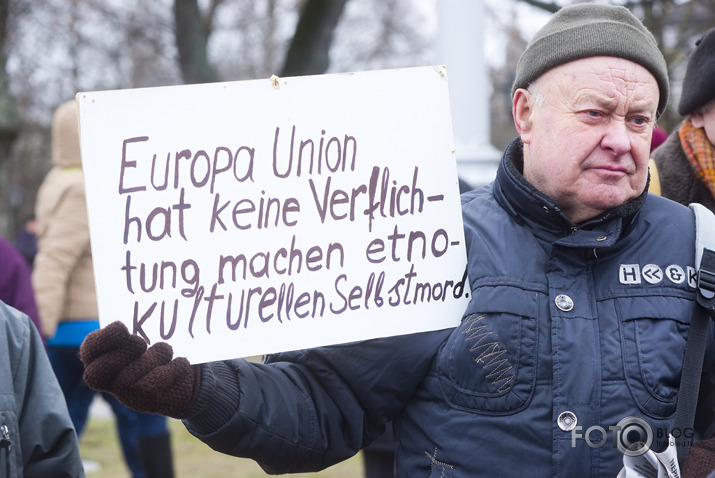 Europa Union
hat keine Verflich-
tung machen etno-
kulturellen Selbstmord.
H & K
FOTO BLOG